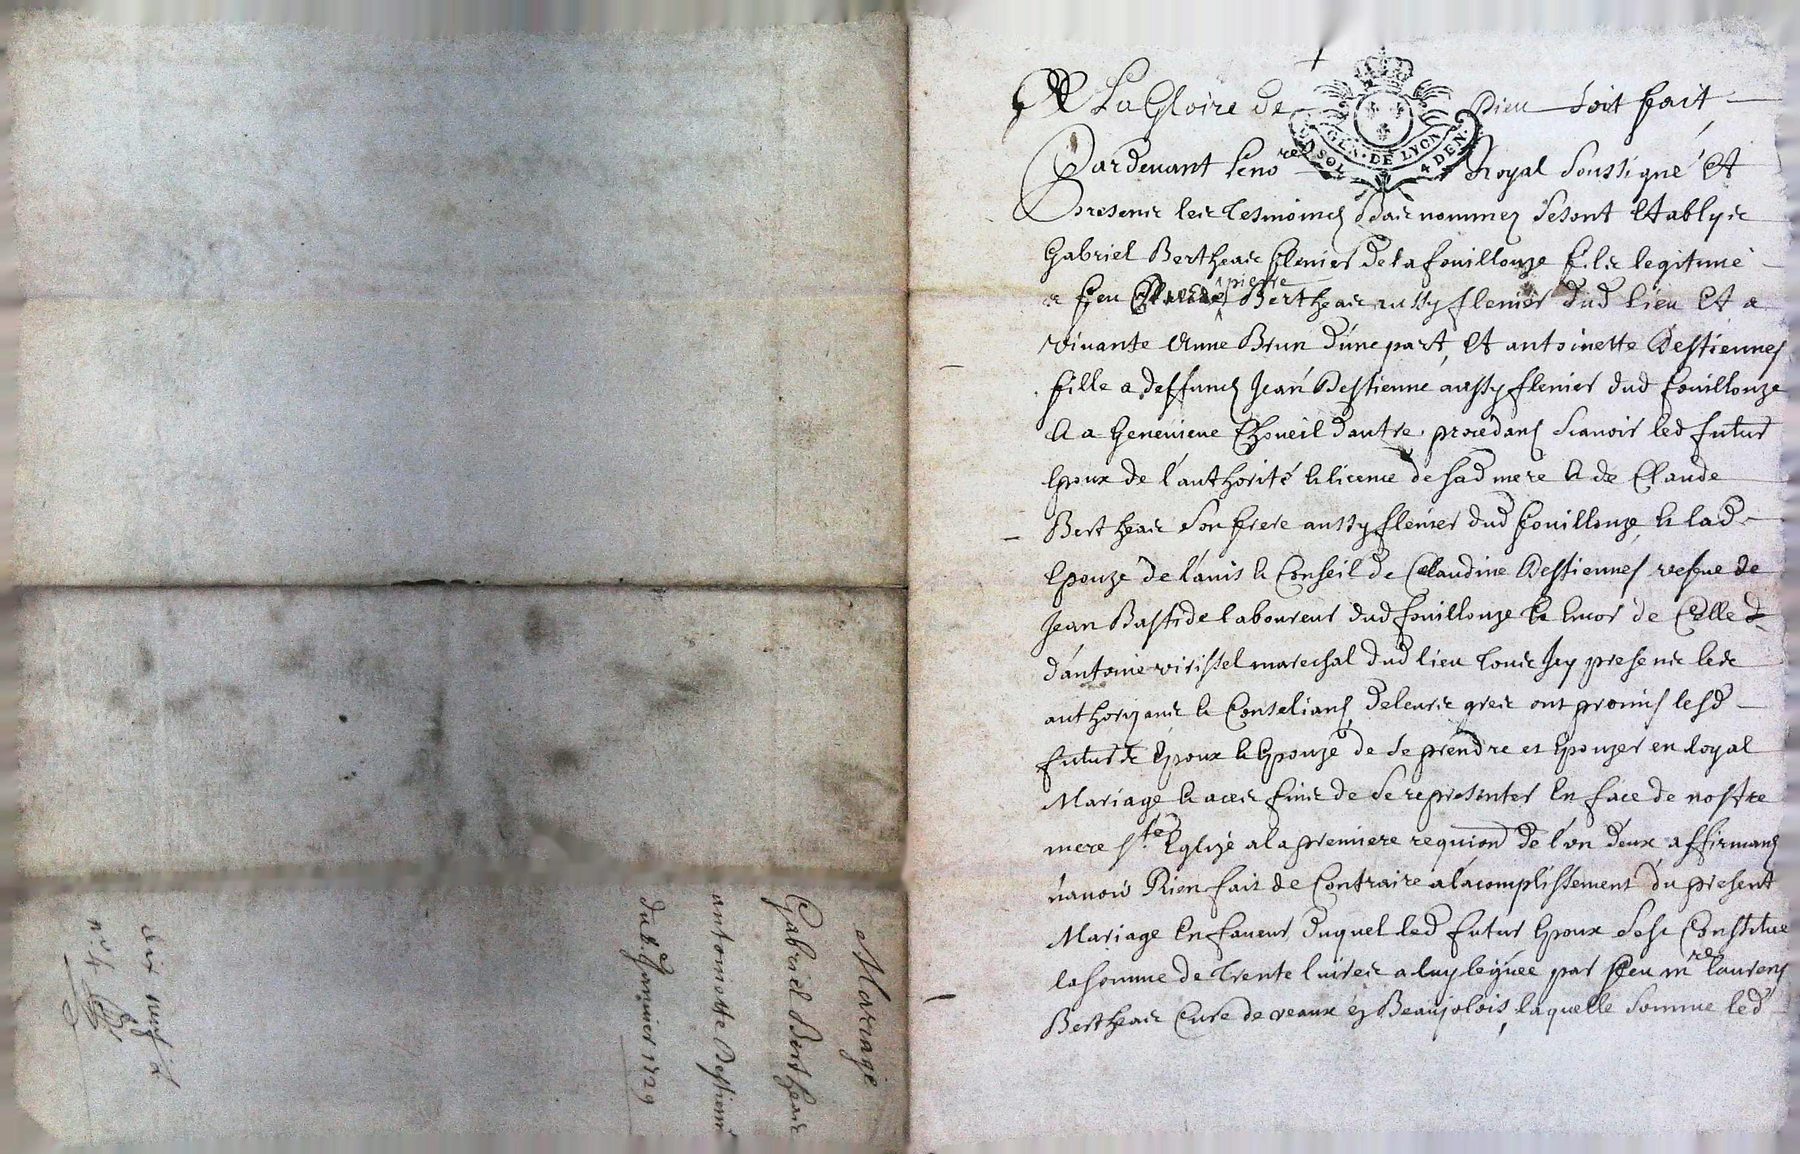 A La Gloire de Dieu Soit fait
GEN. DE LYON
SOL 4 DEN.
Pardevant Le no.re Royal Soussigné Et
presens les Tesmoins bas nommez Sesont Etablys
Gabriel Bertheas flenier de la fouillouze fils legitime
a feu pierre Bertheas aussy flenier dud lieu Et a
vivante Anne Brun d'une part, Et antoinette Destiennes
fille a deffunct Jean Destienne aussy flenier dud fouillouze
& a Genevieve Choveil dautre, procedans Scavoir led futur
Epoux de l'authorité & licence de sad mere & de Claude
Bertheas son frere aussy flenier dud fouillouze, & lad
Epouze de l'avis & Conseil de Claudine Destiennes vefve de
Jean Bastide laboureur dud fouillouze & Encor de Celle
d'antoine virissel marechal dud lieu Tous Icy presens les
authorizans & Conseilians, deleurs grés ont promis lesd
futurs Epoux & Epouze de se prendre et Epouzer en loyal
Mariage & a ces fins de se representer En face de nostre
mere s.te Eglize a la premiere requion de l'un d'eux affirmans
n'avoir Rien fait de Contraire a l'acomplissement du present
Mariage En faveur duquel led futur Epoux s'est Constitué
la somme de Trente livres a luy leguée par feu m.re laurens
Bertheas Curé de veaux en Beaujolois, laquelle somme led
Mariage
Gabriel Bertheas
antoinette Destienne
du Janvier 1729
dix neuf
n.º 4